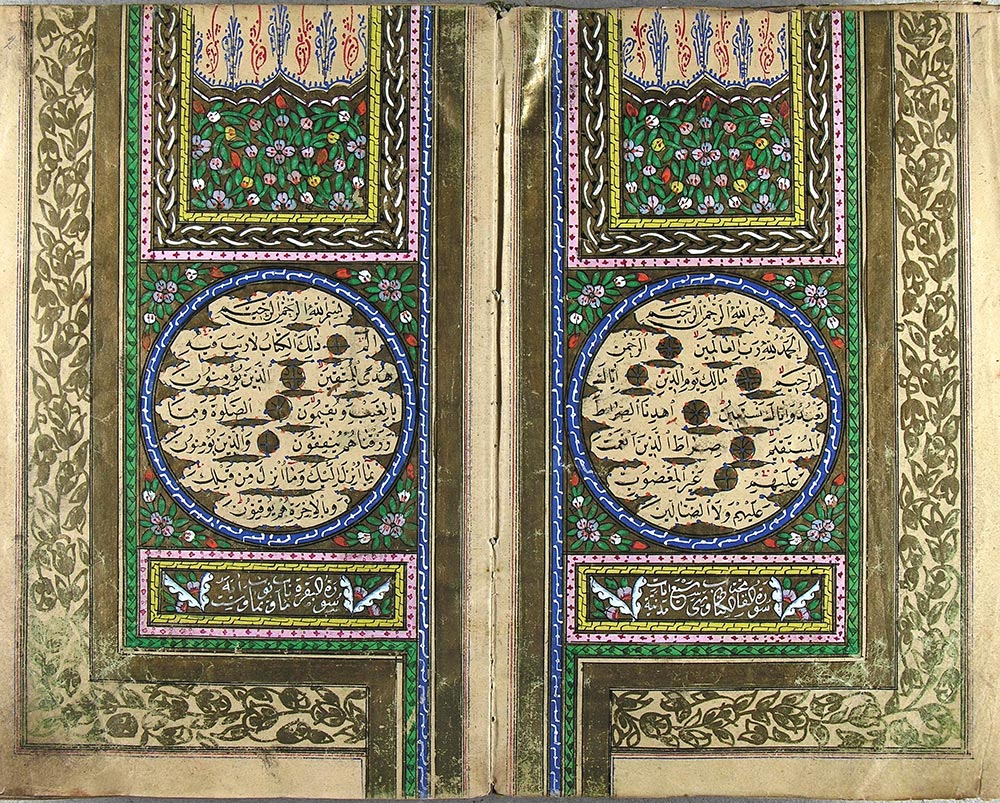 بسم الله الرحمن الرحيم
الحمد لله رب العالمين الرحمن
الرحيم مالك يوم الدين اياك
نعبد واياك نستعين اهدنا الصراط
المستقيم صراط الذين انعمت
عليهم غير المغضوب
عليهم ولا الضالين
سورة الكتاب وهي سبع ايات مدنية
بسم الله الرحمن الرحيم
الم ذلك الكتاب لا ريب فيه
هدى للمتقين الذين يؤمنون
بالغيب ويقيمون الصلوة ومما
رزقناهم ينفقون والذين يؤمنون
بما انزل اليك وما انزل من قبلك
وبالاخرة هم يوقنون
سورة البقرة